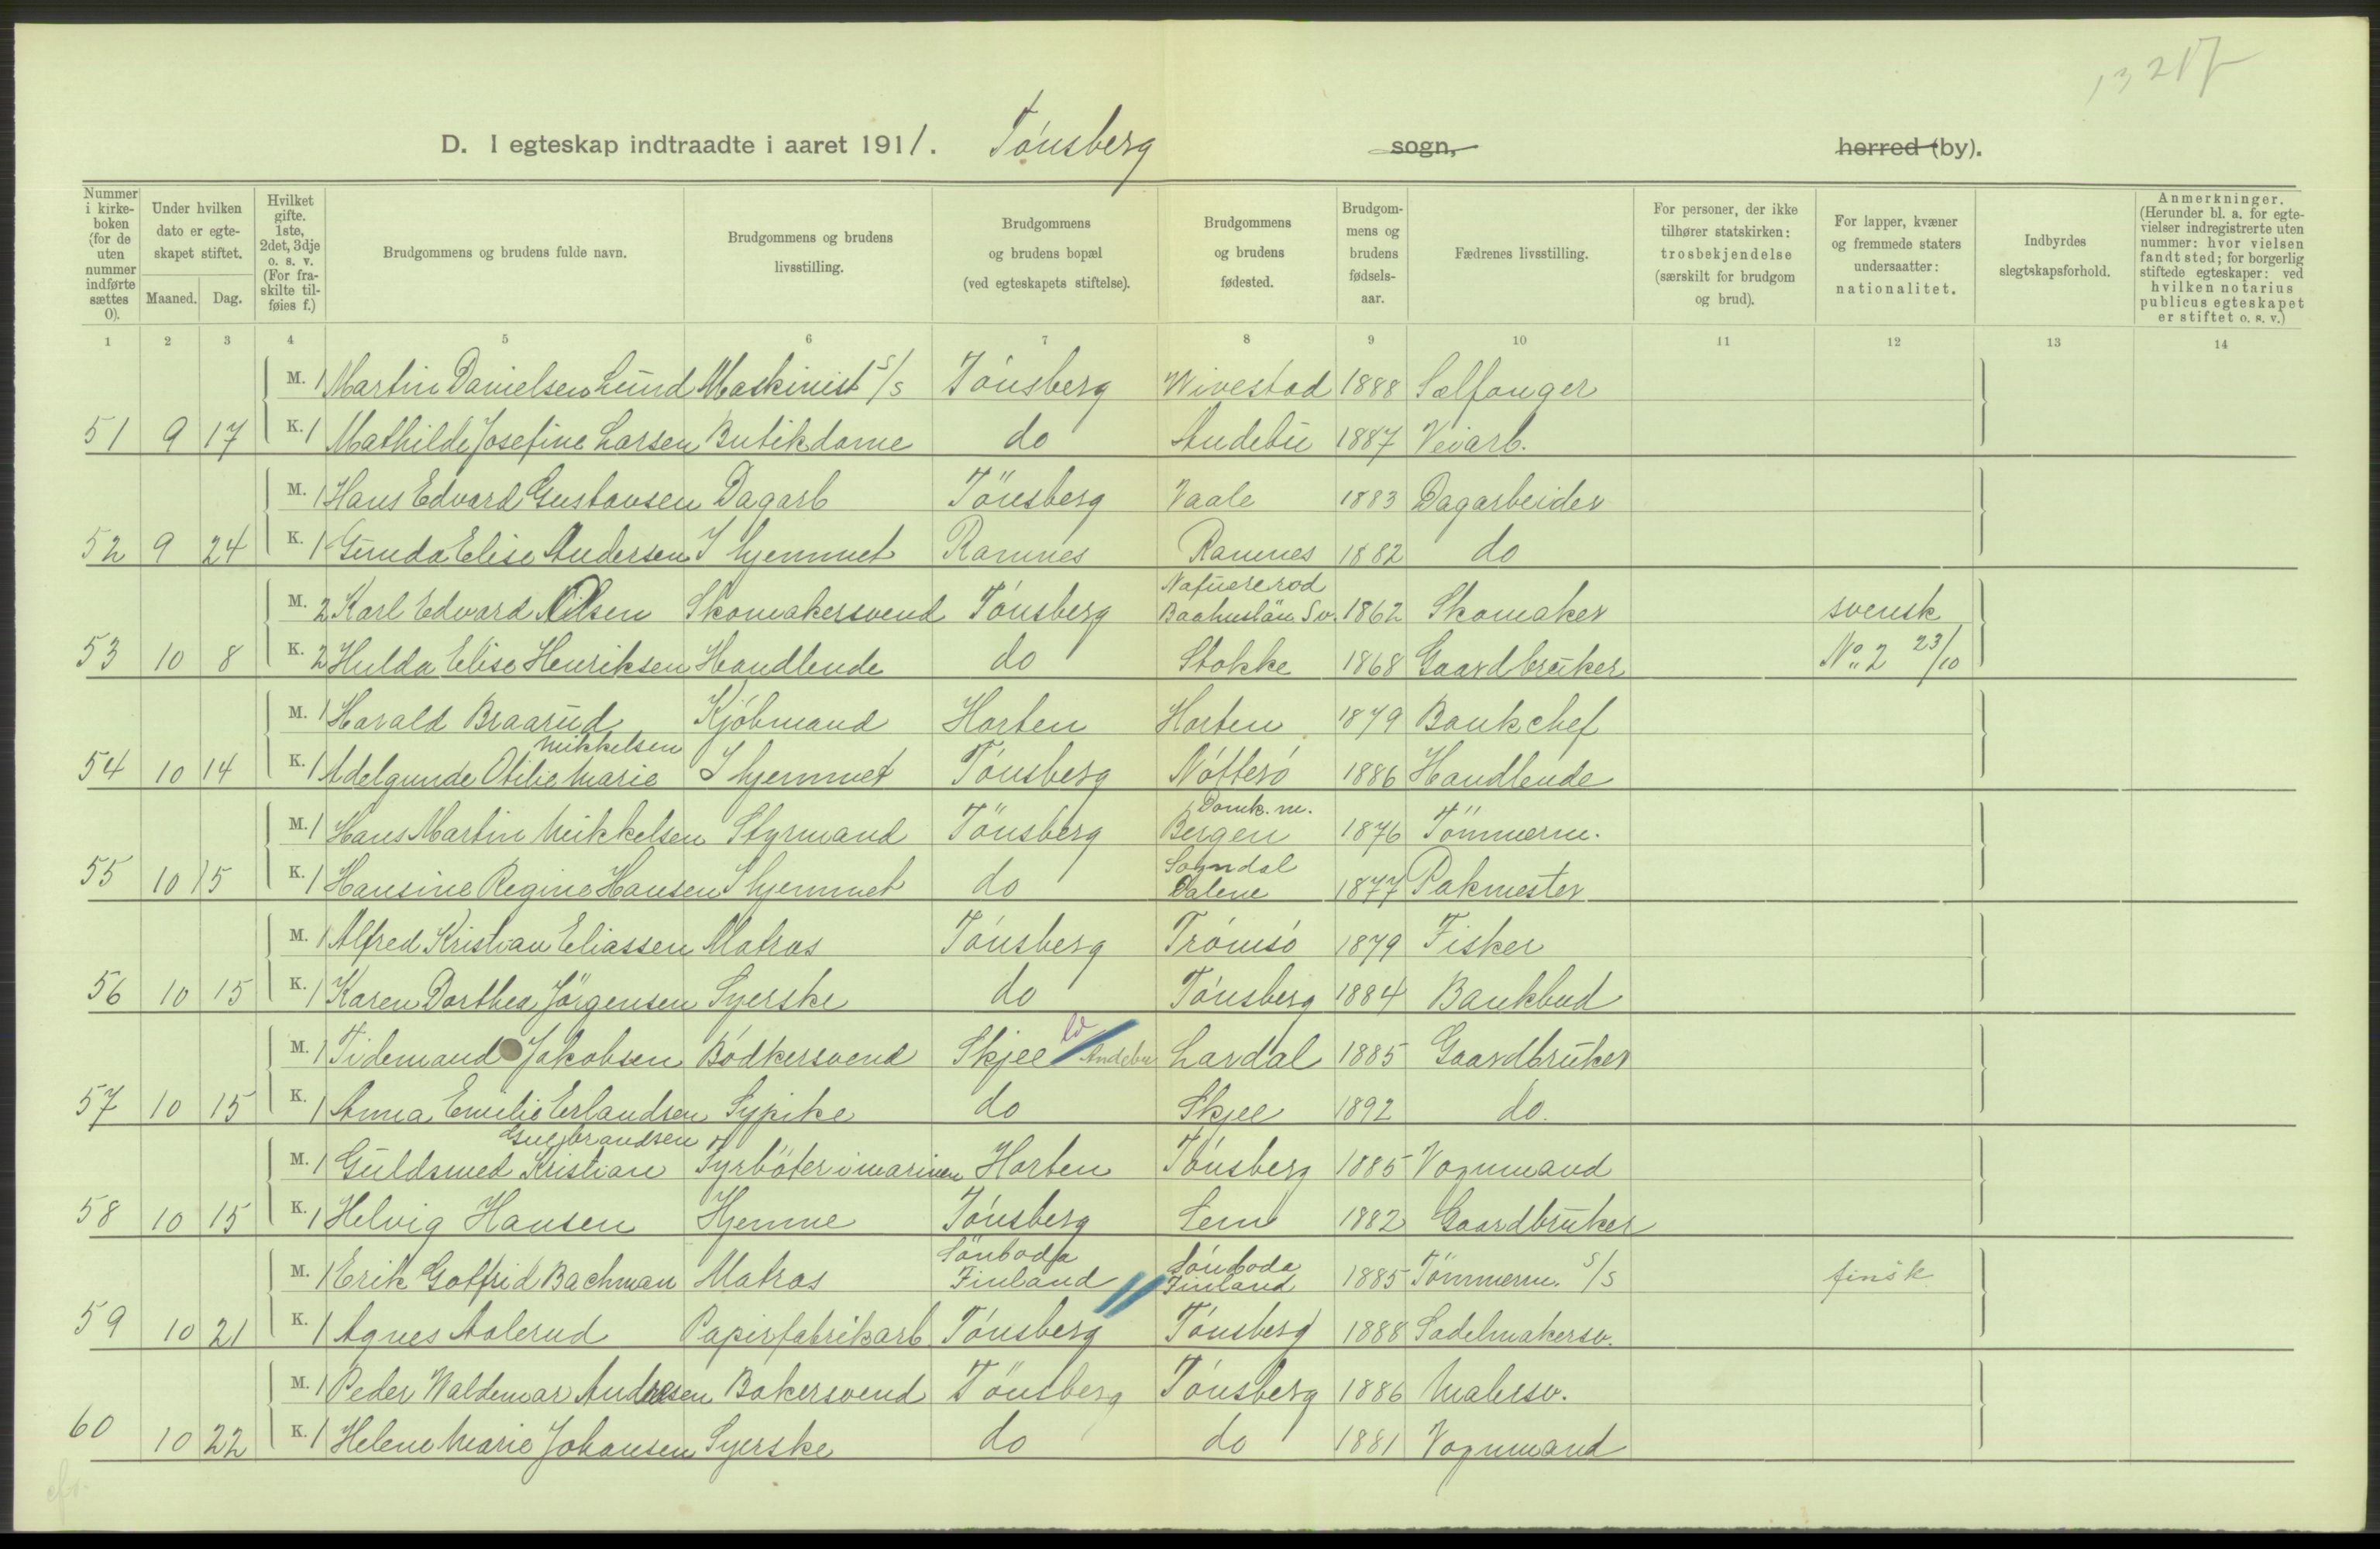 13217
D. I egteskap indtraadte i aaret 1911. Tønsberg sogn, herred (by).
Nummer i kirkeboken (for de uten nummer indførte sættes 0).
Under hvilken dato er egteskapet stiftet.
Maaned. Dag.
Hvilket gifte. 1ste, 2det, 3dje o. s. v. (For fraskilte tilføies f.)
Brudgommens og brudens fulde navn.
Brudgommens og brudens livsstilling.
Brudgommens og brudens bopæl (ved egteskapets stiftelse).
Brudgommens og brudens fødested.
Brudgommens og brudens fødselsaar.
Fædrenes livsstilling.
For personer, der ikke tilhører statskirken: trosbekjendelse (særskilt for brudgom og brud).
For lapper, kvæner og fremmede staters undersaatter: nationalitet.
Indbyrdes slegtskapsforhold.
Anmerkninger. (Herunder bl. a. for egtevielser indregistrerte uten nummer: hvor vielsen fandt sted; for borgerlig stiftede egteskaper: ved hvilken notarius publicus egteskapet er stiftet o. s. v.)
1 2 3 4 5 6 7 8 9 10 11 12 13 14
M. 1 Martin Danielsen Lund Maskinist S/S Tønsberg Vivestad 1888 Sælfanger
51 9 17 K. 1 Mathilde Josefine Larsen Butikdame do Andebu 1887 Veiarb.
M. 1 Hans Edvard Gustavsen Dagarb Tönsberg Vaale 1883 Dagarbeider
52 9 24 K. 1 Gunda Elise Andersen I hjemmet Ramnes Ramnes 1882 do
M. 2 Karl Edvard Nilsen Skomakersvend Tønsberg Baahuslän Sv. 1862 Skomaker svensk
53 10 8 K. 2 Hulda Elise Henriksen Handlende do Stokke 1868 Gaardbruker No. 2 23/10
M. 1 Harald Braarud Kjøbmand Horten Horten 1879 Bankchef
54 10 14 K. 1 Adelgunde Otilie Marie Mikkelsen I hjemmet Tønsberg Nøtterø 1886 Handlende
M. 1 Hans Martin Mikkelsen Styrmand Tönsberg Bergen Domk. m. 1876 Tömmerm.
55 10 15 K. 1 Hansine Regine Hansen I hjemmet do Sogndal Dalene 1877 Pakmester
M. 1 Alfred Kristian Eliassen Matros Tønsberg Trømsø 1879 Fisker
56 10 15 K. 1 Karen Dorthea Jörgensen Syerske do Tønsberg 1884 Bankbud
M. 1 Tidemand Jakobsen Bødkersvend Skjee Andebu Lardal 1885 Gaardbruker
57 10 15 K. 1 Anna Emilie Erlandsen Sypike do Skjee 1892 do.
M. 1 Guldsmed Kristian Gulbrandsen Fyrbøter i marinen Horten Tønsberg 1885 Vognmand
58 10 15 K. 1 Helvig Hansen Hjemme Tønsberg Sem 1882 Gaardbruker
M. 1 Erik Gotfrid Bachman Matros Sönboda Finland Sönboda Finland 1885 Tömmerm. S/S finsk
59 10 21 K. 1 Agnes Aolerud Papirfabrikarb. Tønsberg Tønsberg 1888 Sadelmakersv.
M. 1 Peder Waldemar Andresen Bakersvend Tönsberg Tønsberg 1886 Malersv.
60 10 22 K. 1 Helene Marie Johansen Syerske do do 1881 Vognmand